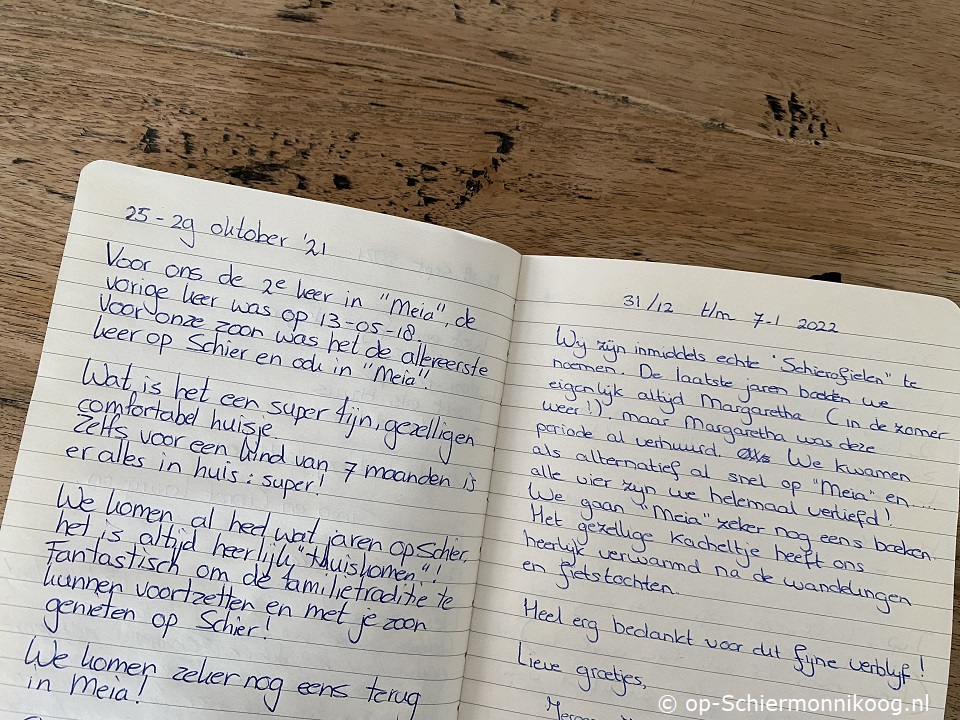 25-29 oktober '21
Voor ons de 2e keer in "Meia", de
vorige keer was op 13-05-18.
Voor onze zoon was het de allereerste
keer op Schier en ook in "Meia".
Wat is het een super fijn, gezelligen
comfortabel huisje.
Zelfs voor een kind van 7 maanden is
er alles in huis: super!
We komen al heel wat jaren op Schier,
het is altijd heerlijk "thuiskomen"!
Fantastisch om de familietraditie te
kunnen voortzetten en met je zoon
genieten op Schier!
We komen zeker nog eens terug
in Meia!
31/12 t/m 7-1 2022
Wy zijn inmiddels echte "Schierofielen" te
noemen. De laatste jaren boeken we
eigenlijk altijd Margaretha (in de zomer
weer!) maar Margaretha was deze
periode al verhuurd. We kwamen
als alternatief al snel op "Meia" en....
alle vier zijn we helemaal verliefd!
We gaan "Meia" zeker nog eens boeken.
Het gezellige kacheltje heeft ons
heerlijk verwarmd na de wandelingen
en fietstochten.
Heel erg bedankt voor dit fijne verblijf!
Lieve groetjes,
© op-Schiermonnikoog.nl